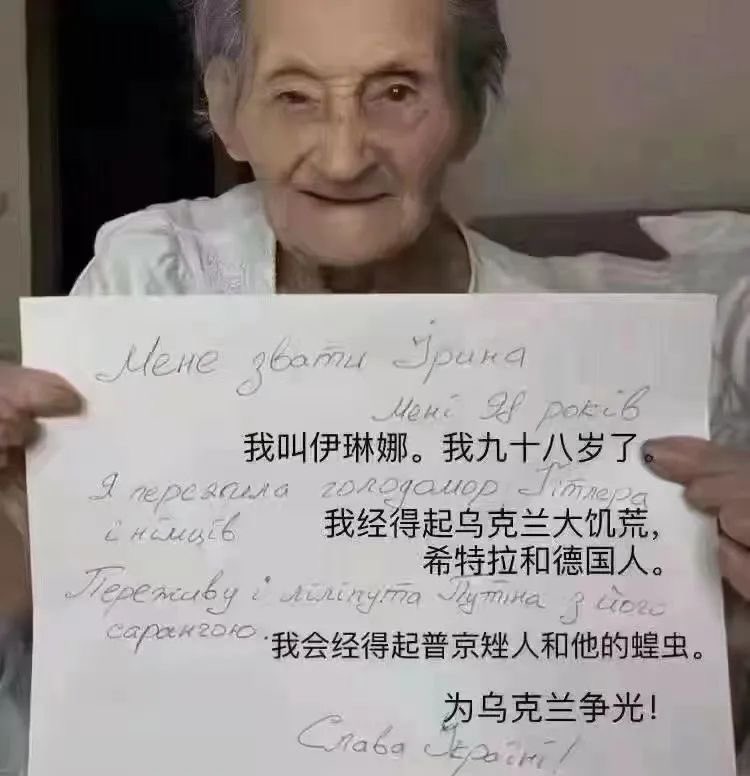 Мене звати Ірина
Мені 98 років
我叫伊琳娜。我九十八岁了。
Я пережила голодомор Гітлера
і німців
我经得起乌克兰大饥荒，
希特拉和德国人。
Переживу і ліліпута Путіна з його
саранчою.
我会经得起普京矬人和他的蝗虫。
为乌克兰争光！
Слава Україні!